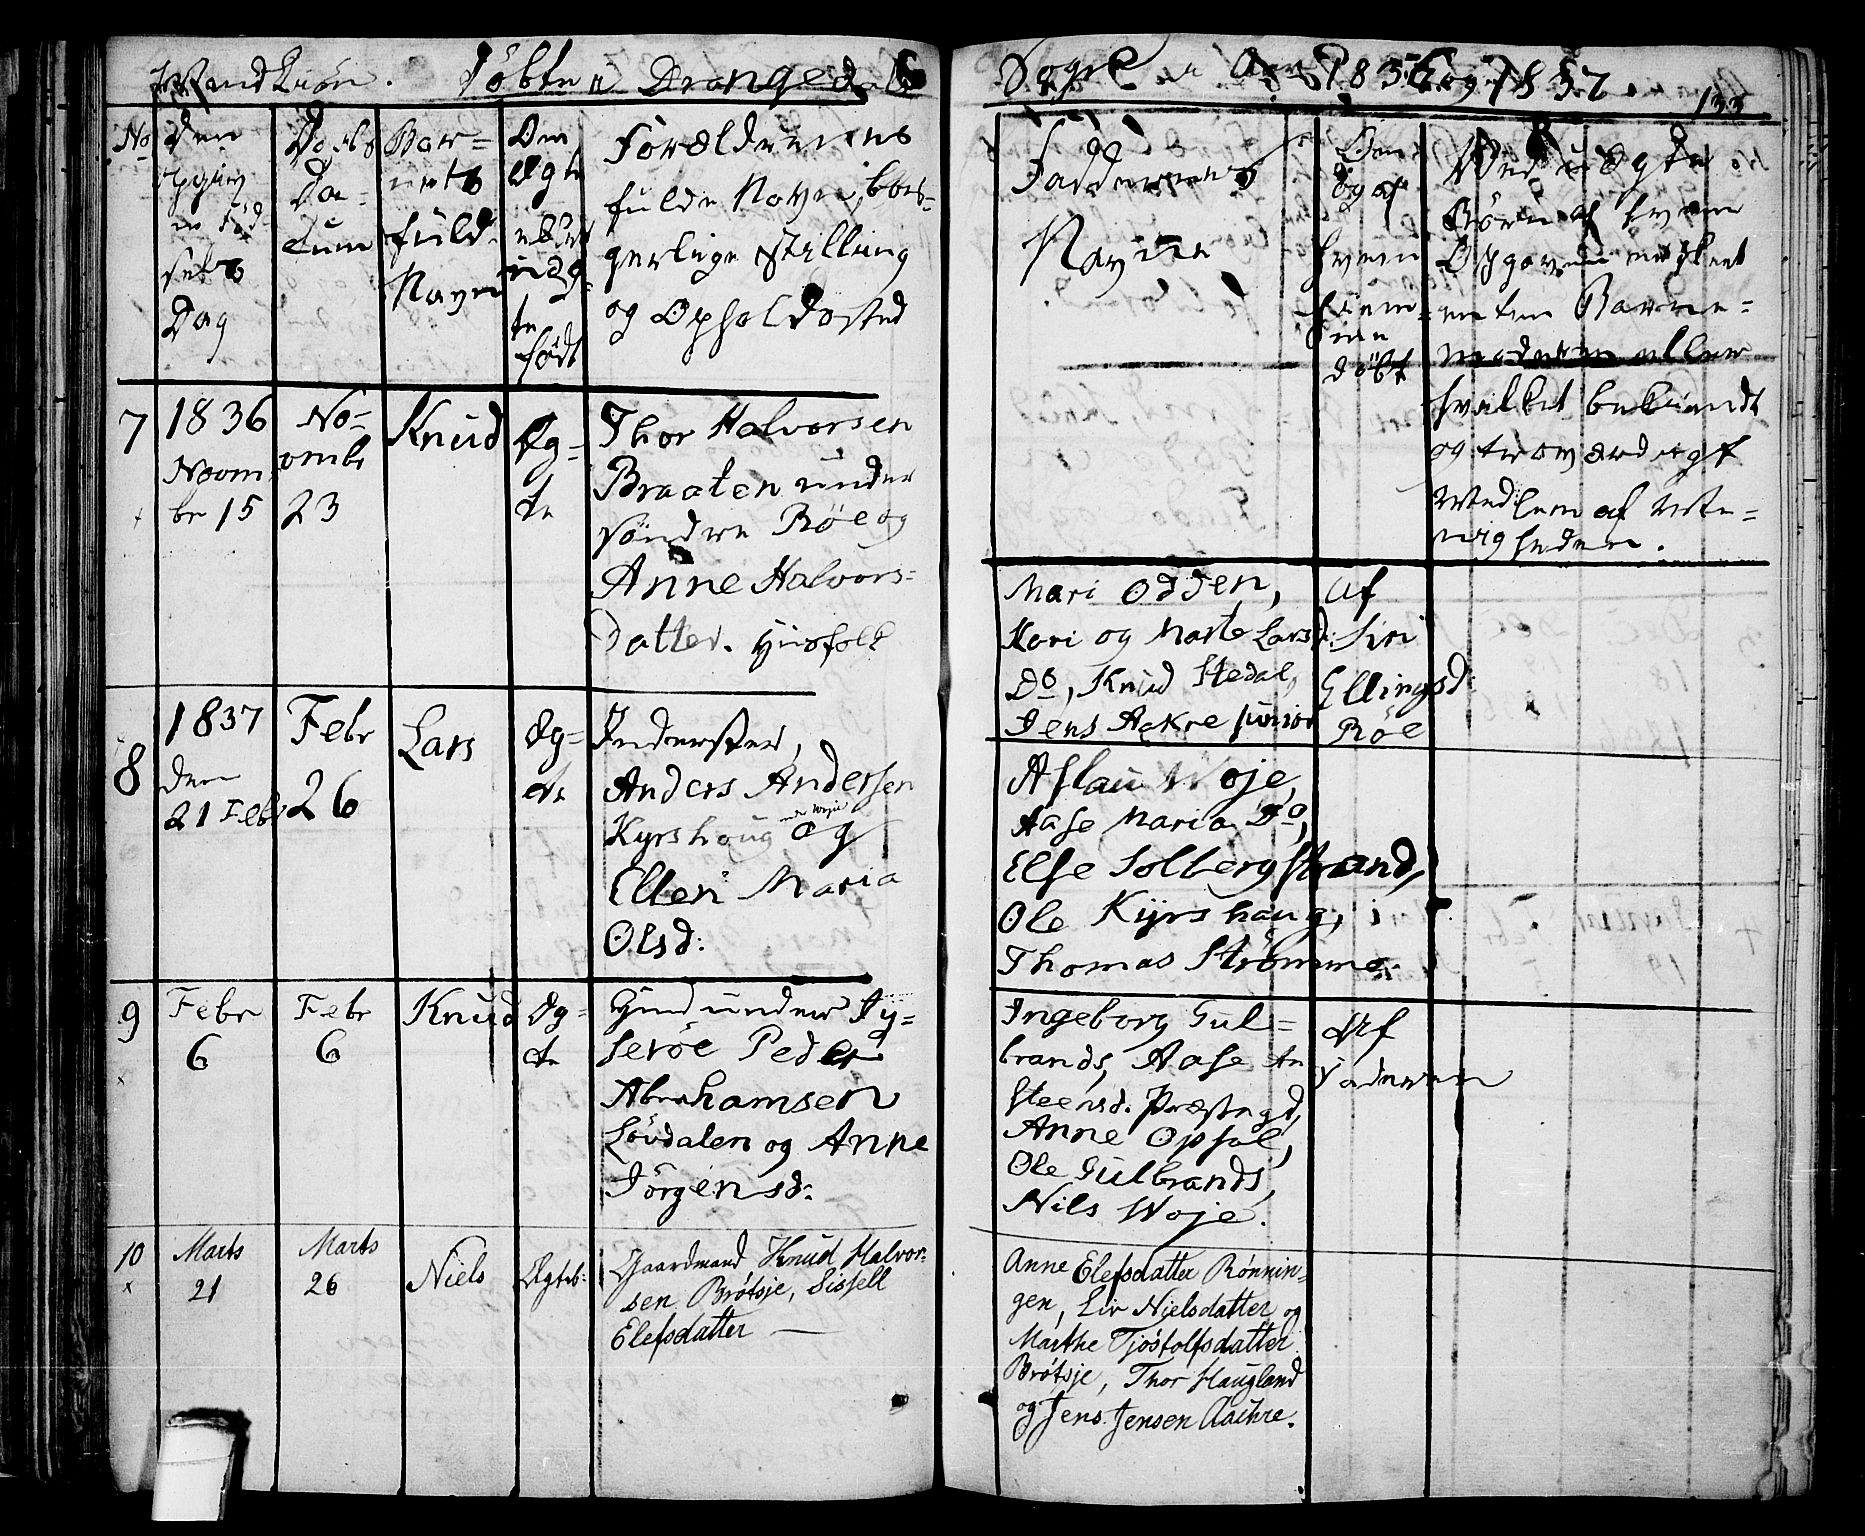 Mandkiøn. Döbte i Drangeds
Sogn i Aar 1836 og 1837.
133
No
den
opgivne Föd-
sels
Dag
Daabs
Da-
tum
Bar-
nets
fulde
Navn
Om
Ægte
eller
uæg-
te
födt
Forældrenes
fulde Navn, bor-
gerlige Stilling
og Opholdssted
Faddernes
Navne
Om
og af
hvem
hiem-
me
döbt
Ved uægte
Börn af hvem
Opgaven er skeet
enten Barne-
moderen eller
hvilket bekiendt
og troværdigt
Medlem af Me-
nigheden.
7
1836
Novem
br 15
No-
vembr
23
Knud
Æg-
te
Thor Halvorsen
Braaten under
söndre Röe og
Anne Halvors-
datter. Huusfolk
Mari Odden,
Kari og Marte Larsd:
Do, Knud Stedal,
Jens Aakre junior
Af
Siri
Ellingsd:
Röe
8
1837
den
21 Febr
Febr
26
Lars
Æg-
te
Inderster,
Anders Andersen
Kyrshoug under Woje og
Ellen Maria
Olsd:
Aslau Woje,
Aase Maria Do,
Else Solbergstrand,
Ole Kyrshaug, i
Thomas Strömme.
9
Febr
6
Febr
6
Knud
Æg-
te
Huusmd under Ty-
seröe Peder
Abrahamsen
Lövdalen og Anne
Jörgensd:
Ingeborg Gul-
brands, Aase An
steensd. Præstegd,
Anne Opsal,
Ole Gulbrands,
Nils Woje.
Af
Faderen
10
Marts
21
Marts
26
Niels
Ægteb:
Gaardmand Knud Halvor-
sen Brötsje, Sissell
Elefsdatter —
Anne Elefsdatter Rönnin-
gen, Liv Nielsdatter og
Marthe Tjöstolfsdatter
Brötsje, Thor Haugland
og Jens Jensen Aachre.